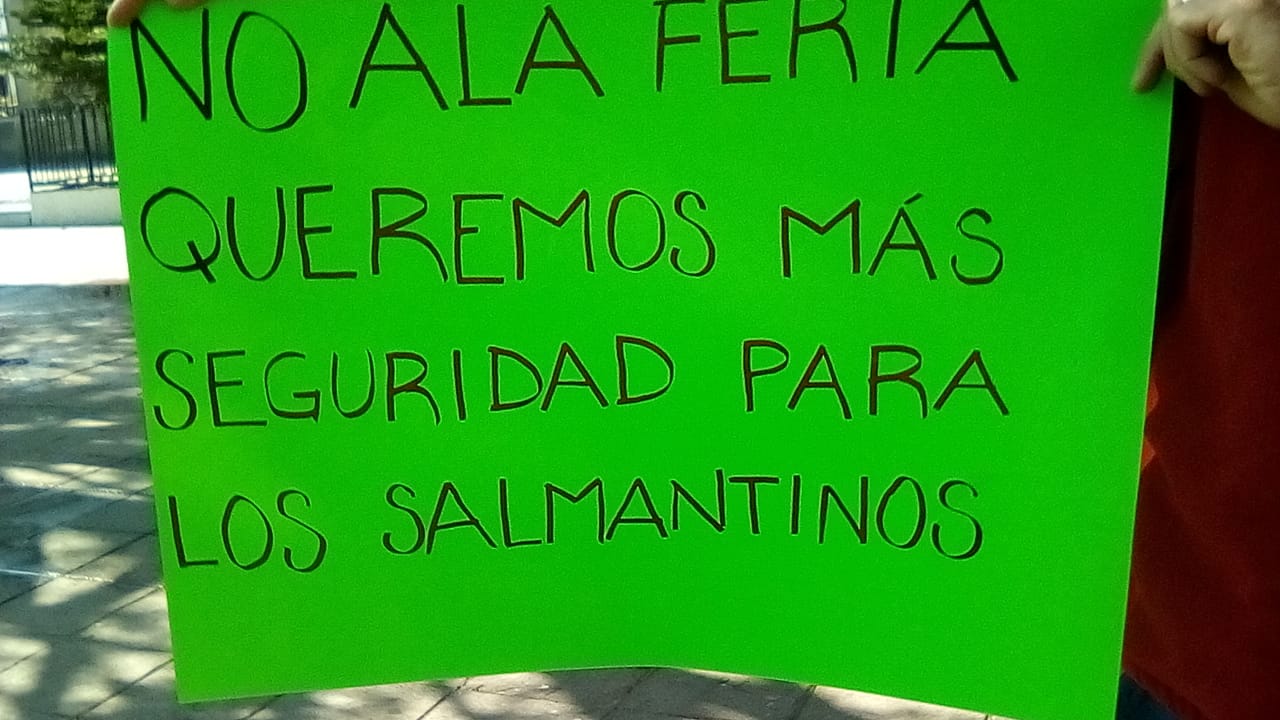 NO ALA FERIA
QUEREMOS MÁS
SEGURIDAD PARA
LOS SALMANTINOS